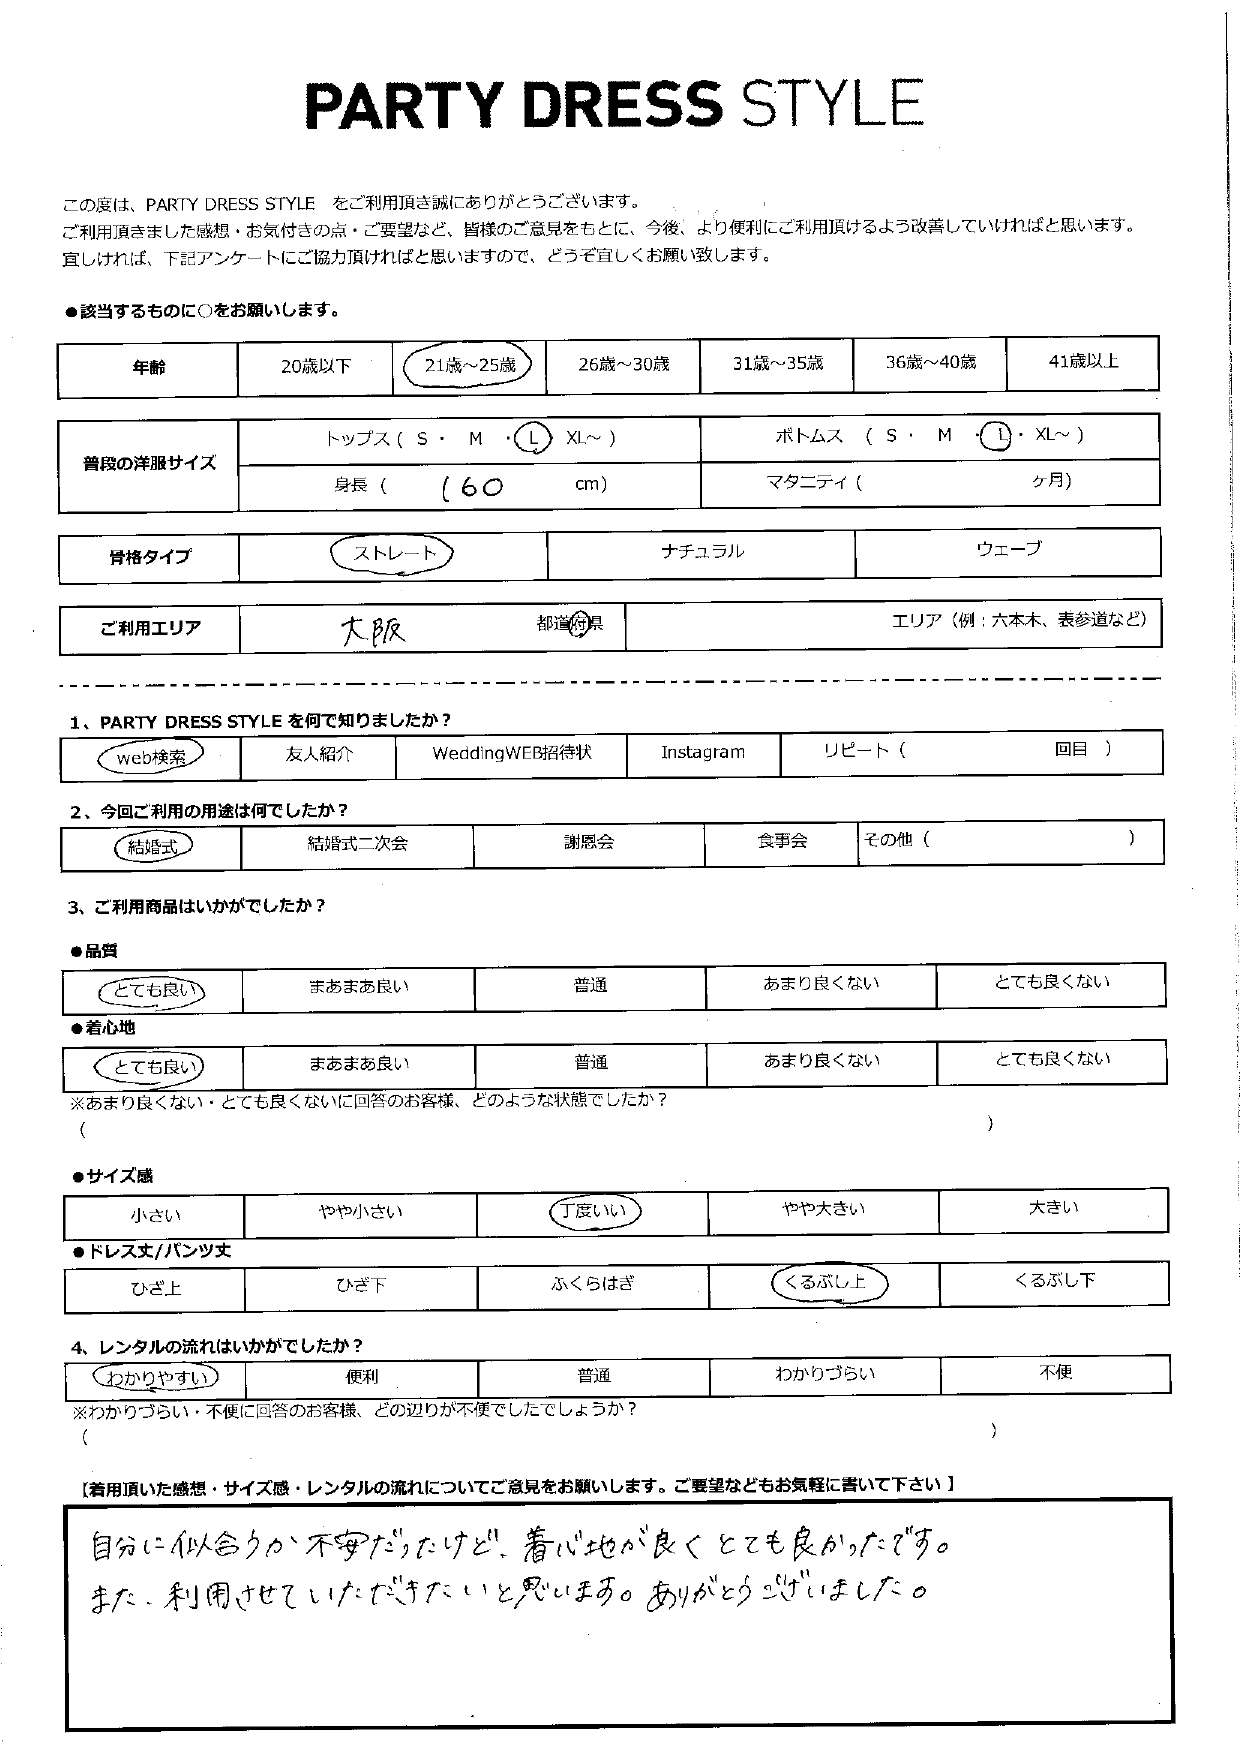 PARTY DRESS STYLE
この度は、PARTY DRESS STYLE をご利用頂き誠にありがとうございます。
ご利用頂きました感想・お気付きの点・ご要望など、皆様のご意見をもとに、今後、より便利にご利用頂けるよう改善していければと思います。
宜しければ、下記アンケートにご協力頂ければと思いますので、どうぞ宜しくお願い致します。
●該当するものに○をお願いします。
年齢 20歳以下 21歳～25歳 26歳～30歳 31歳～35歳 36歳～40歳 41歳以上
普段の洋服サイズ トップス ( S ・ M ・ L XL～ ) ボトムス ( S ・ M ・ L ・ XL～ )
身長 ( 160 cm) マタニティ ( ヶ月)
骨格タイプ ストレート ナチュラル ウェーブ
ご利用エリア 大阪 都道府県 エリア（例：六本木、表参道など）
1、PARTY DRESS STYLE を何で知りましたか？
web検索 友人紹介 WeddingWEB招待状 Instagram リピート ( 回目 )
2、今回ご利用の用途は何でしたか？
結婚式 結婚式二次会 謝恩会 食事会 その他 ( )
3、ご利用商品はいかがでしたか？
●品質
とても良い まあまあ良い 普通 あまり良くない とても良くない
●着心地
とても良い まあまあ良い 普通 あまり良くない とても良くない
※あまり良くない・とても良くないに回答のお客様、どのような状態でしたか？
( )
●サイズ感
小さい やや小さい 丁度いい やや大きい 大きい
●ドレス丈/パンツ丈
ひざ上 ひざ下 ふくらはぎ くるぶし上 くるぶし下
4、レンタルの流れはいかがでしたか？
わかりやすい 便利 普通 わかりづらい 不便
※わかりづらい・不便に回答のお客様、どの辺りが不便でしたでしょうか？
( )
【着用頂いた感想・サイズ感・レンタルの流れについてご意見をお願いします。ご要望などもお気軽に書いて下さい】
自分に似合うか不安だったけど、着心地が良くとても良かったです。
また、利用させていただきたいと思います。ありがとうございました。